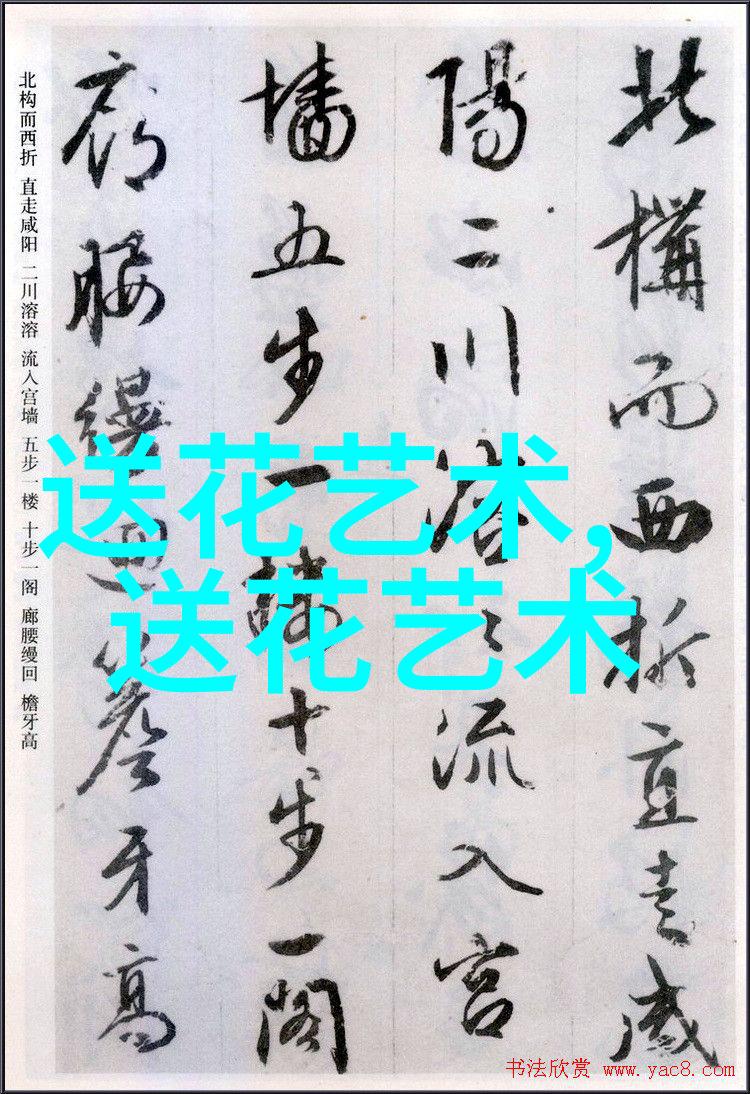 北構而西折直走咸
陽二川溶〻流入宮
墻五步一樓十步一閣
廊腰縵迴簷牙高
北构而西折 直走咸阳 二川溶溶 流入宫墙 五步一楼 十步一阁 廊腰缦回 檐牙高
送花艺术,
送花艺术
书法欣赏 www.yac8.com